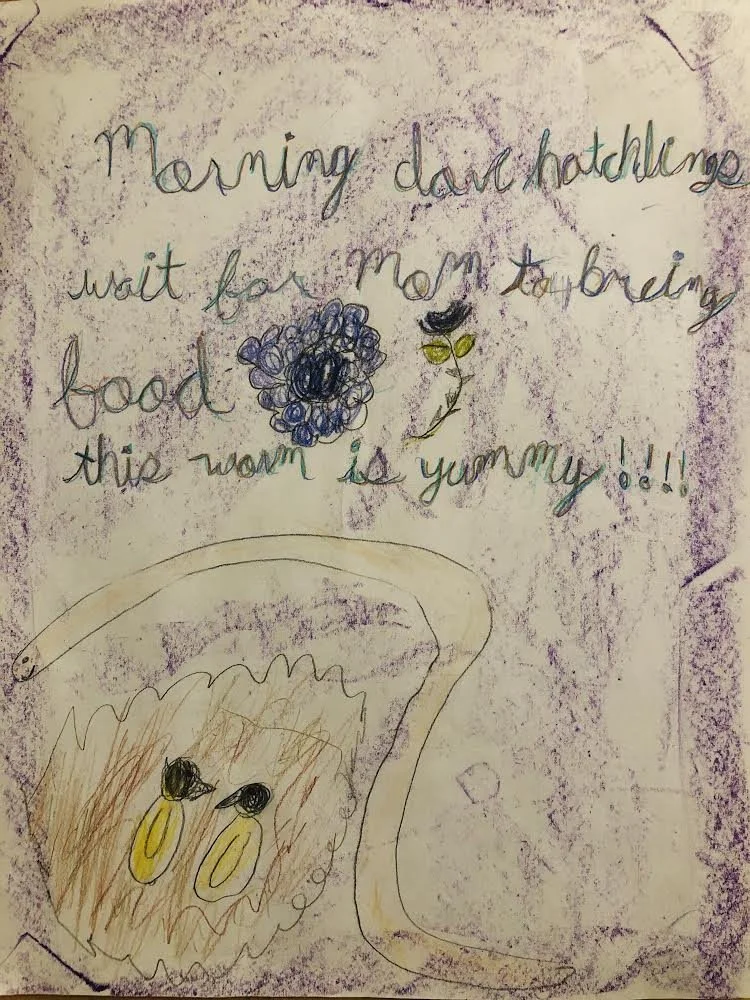 Morning dove hatchlings
wait for Mom to breing
food
this worm is yummy !!!!